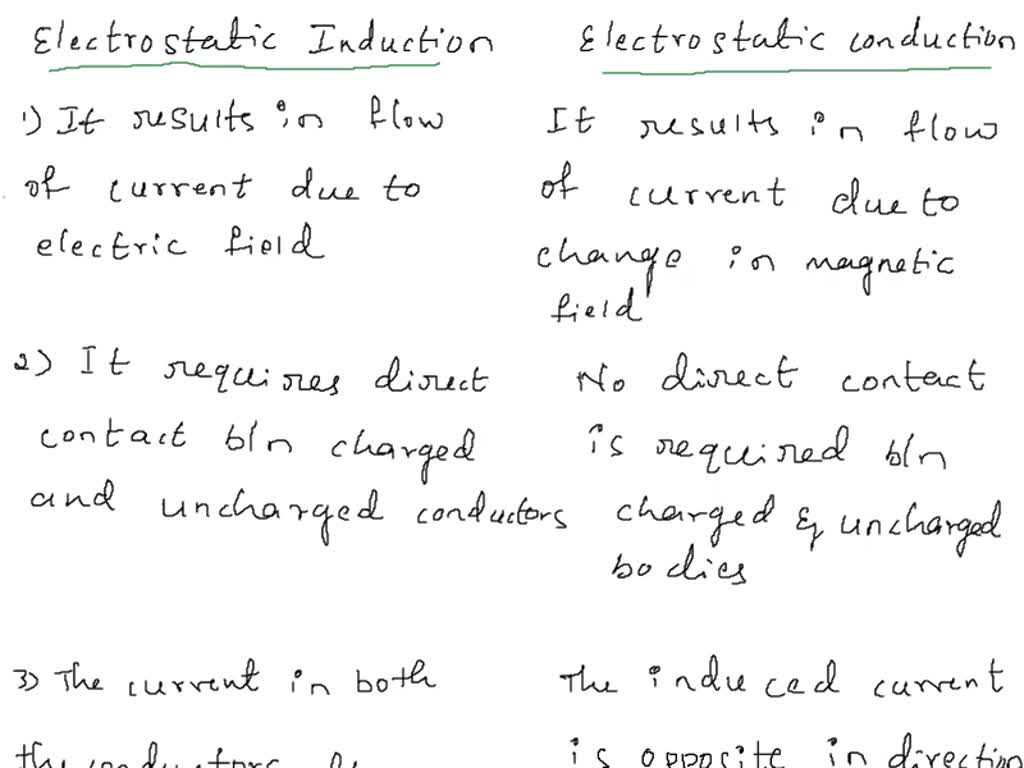 Electrostatic Induction
Electrostatic conduction
1) It results in flow
of current due to
electric field
It results in flow
of current due to
change in magnetic
field
2) It requires direct
contact b/n charged
and uncharged conductors
No direct contact
is required b/n
charged & uncharged
bodies
3) The current in both
the conductors
The induced current
is opposite in direction